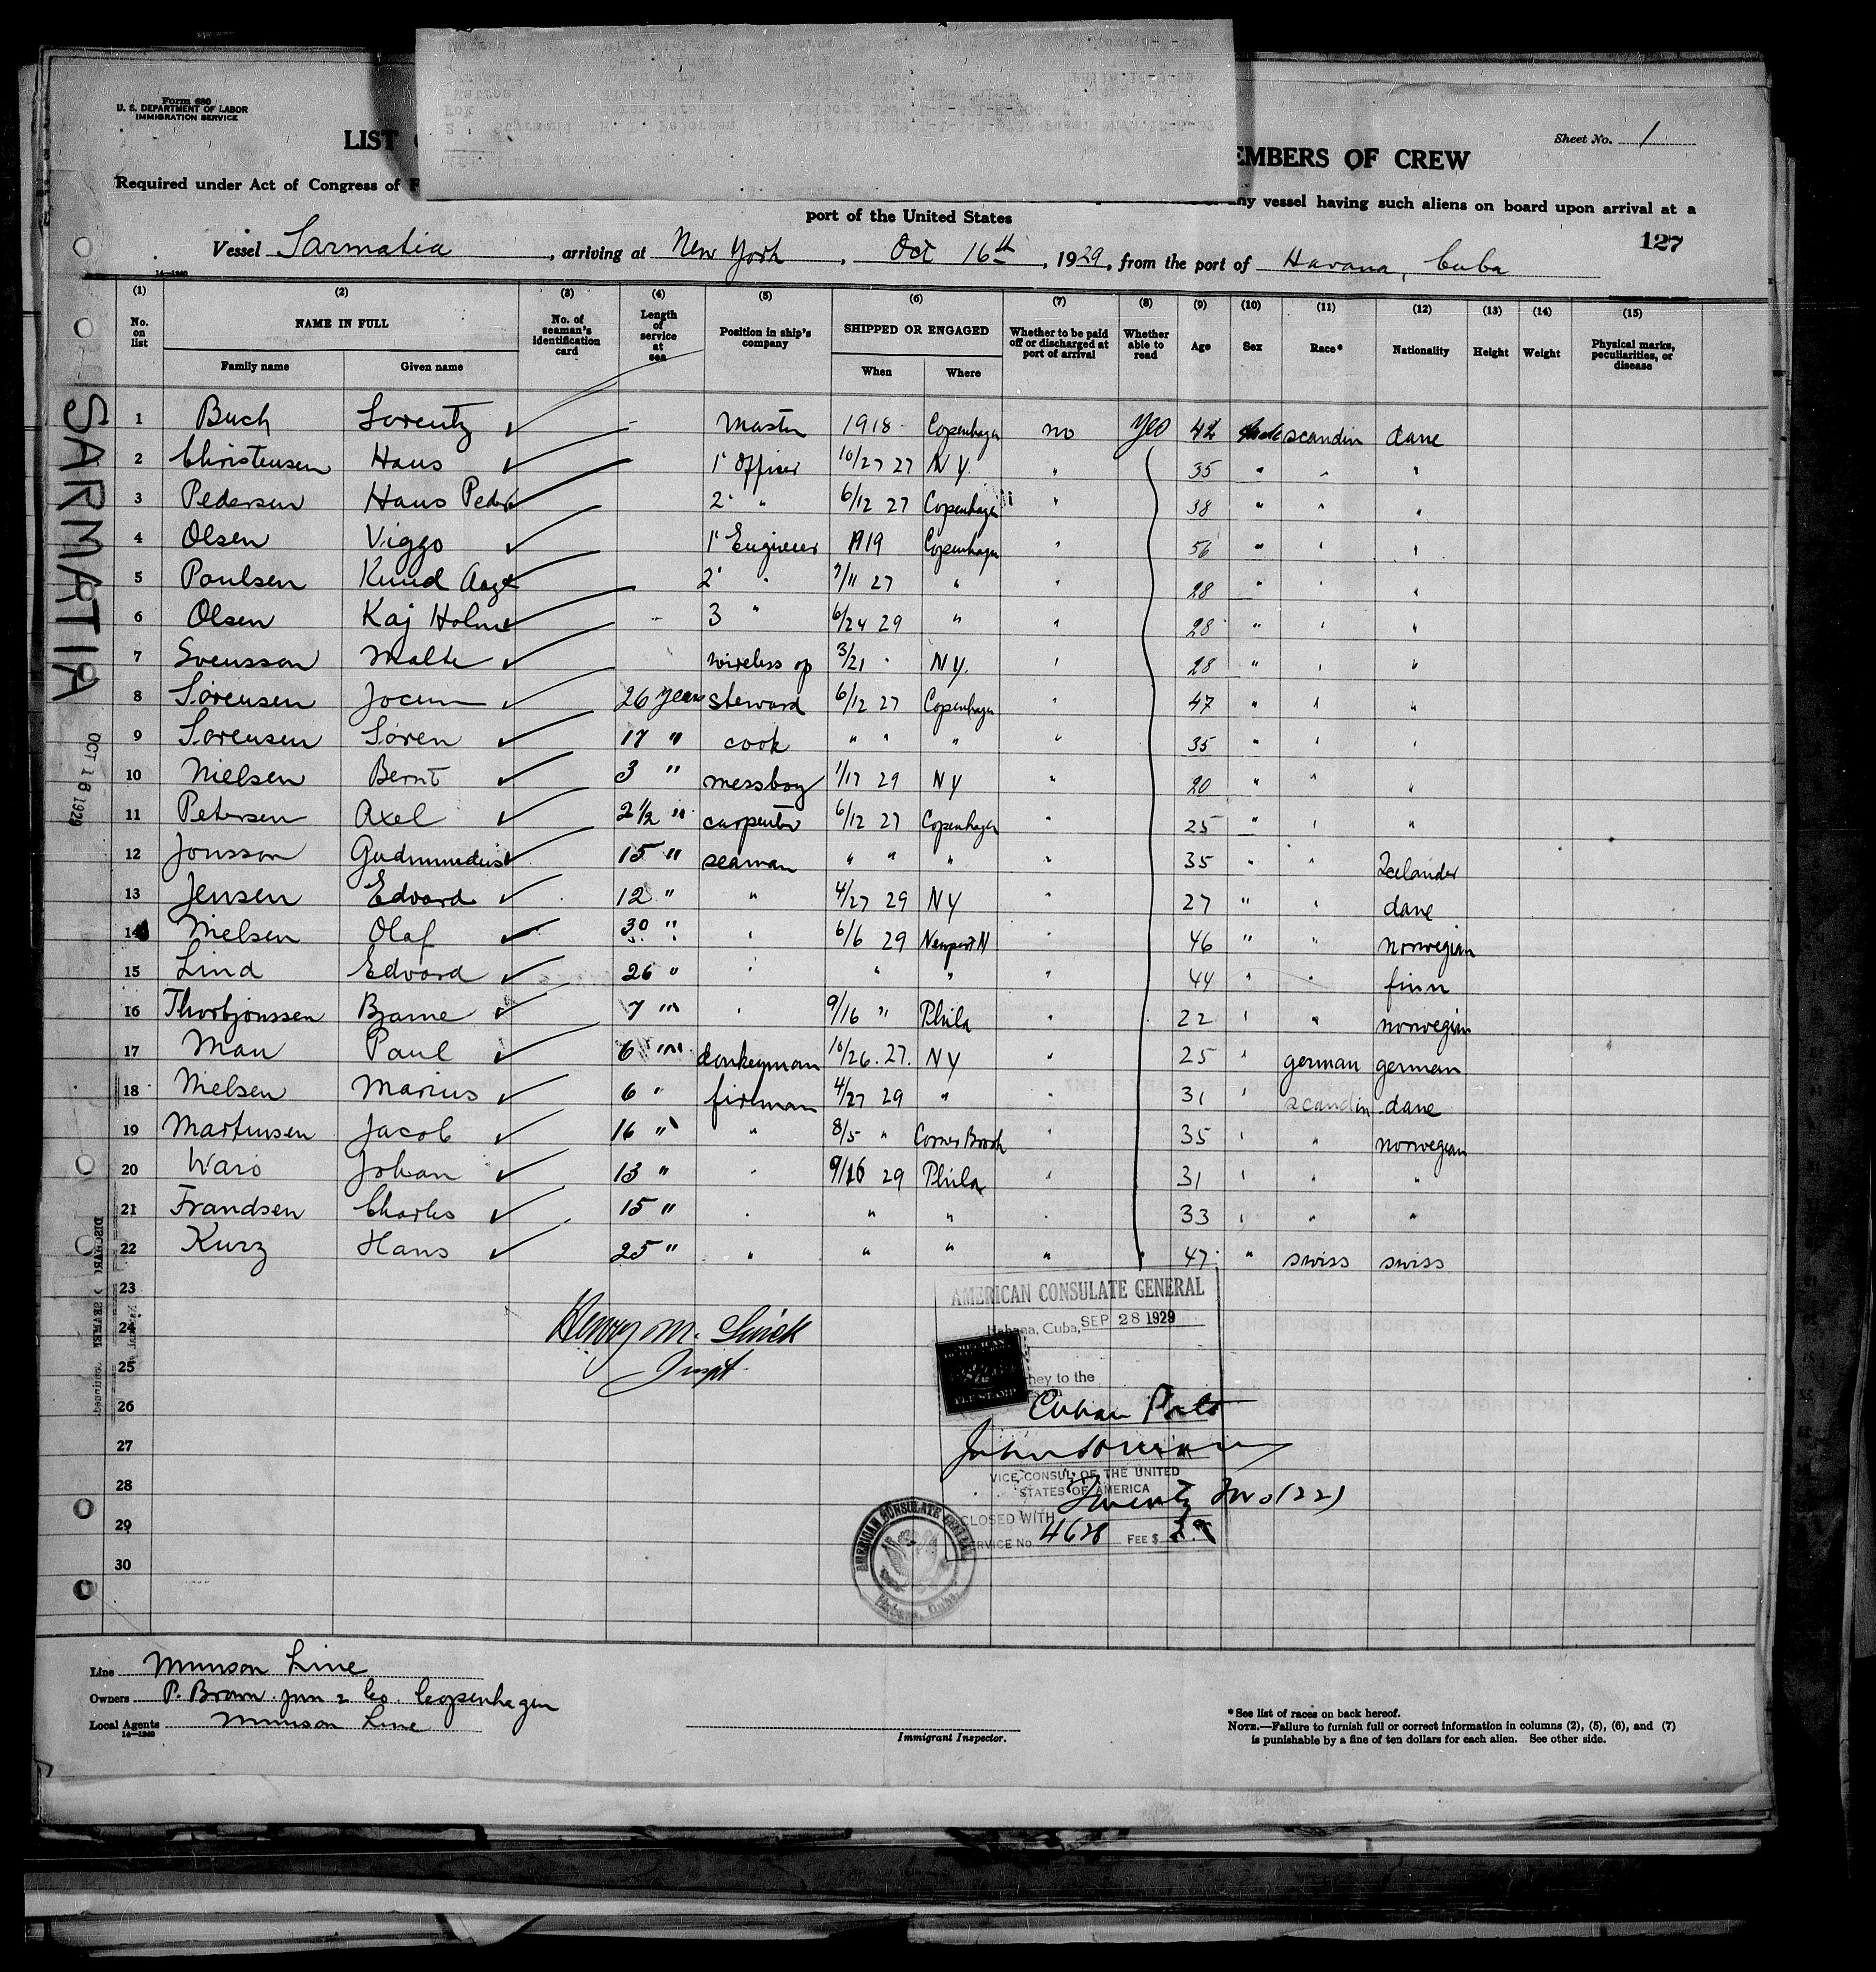 Form 680
U. S. DEPARTMENT OF LABOR
IMMIGRATION SERVICE
Sheet No. 1
LIST
EMBERS OF CREW
Required under Act of Congress of F
any vessel having such aliens on board upon arrival at a
port of the United States
127
Vessel Sarmatia, arriving at New York, Oct 16th, 1929, from the port of Havana, Cuba
14—1240
(1) (2) (3) (4) (5) (6) (7) (8) (9) (10) (11) (12) (13) (14) (15)
No. on list NAME IN FULL No. of seaman's identification card Length of service at sea Position in ship's company SHIPPED OR ENGAGED Whether to be paid off or discharged at port of arrival Whether able to read Age Sex Race* Nationality Height Weight Physical marks, peculiarities, or disease
Family name Given name When Where
1 Buch Lorentz ✓ - Master 1918 Copenhagen no yes 42 male scandin dane
2 Christensen Hans ✓ 1' Officer 10/27 27 N.Y. " 35 " " "
3 Pedersen Hans Peder 2' " 6/12 27 Copenhagen " 38 " " "
4 Olsen Viggo ✓ 1' Engineer 1919 Copenhagen " 56 " " "
5 Paulsen Knud Aage 2' " 7/11 27 " " 28 " " "
6 Olsen Kaj Holme - 3 " 6/24 29 " " 28 " " "
7 Svensson Malte ✓ wireless op 3/21 " N.Y. " 28 " " "
8 Sørensen Jocum ✓ 26 years steward 6/12 27 Copenhagen " 47 " " "
9 Sørensen Søren ✓ 17 " cook " " " " 35 " " "
10 Nielsen Bernt ✓ 3 " messboy 1/17 29 NY " 20 " " "
11 Petersen Axel ✓ 2 1/2 " carpenter 6/12 27 Copenhagen " 25 " " "
12 Jonsson Gudmundus ✓ 15 " seaman " " " " 35 " " Icelander
13 Jensen Edvard ✓ 12 " " 4/27 29 NY " 27 " " dane
14 Nielsen Olaf ✓ 30 " " 6/6 29 Newport N " 46 " " norwegian
15 Lind Edvard ✓ 26 " " " " " 44 " " finn
16 Thorbjonssen Bjarne ✓ 7 " " 9/16 " Phila " 22 " " norwegian
17 Man Paul ✓ 6 " donkeyman 10/26. 27. NY " 25 " german german
18 Nielsen Marius ✓ 6 " fireman 4/27 29 " " 31 " scandin dane
19 Martinsen Jacob ✓ 16 " " 8/5 " Corner Brook " 35 " " norwegian
20 Waro Johan ✓ 13 " " 9/16 29 Phila " 31 " " "
21 Frandsen Charles ✓ 15 " " " " " 33 " " "
22 Kurz Hans ✓ 25 " " " " " " 47 " swiss swiss
23
24
25
26
27
28
29
30
SARMATIA
OCT 16 1929
Henry M.
Inspt.
AMERICAN CONSULATE GENERAL
Habana, Cuba, SEP 28 1929
hey to the
Cuban Ports
VICE CONSUL OF THE UNITED
STATES OF AMERICA
Twenty Two (22)
CLOSED WITH
SERVICE No. 4628 FEE $
AMERICAN CONSULATE GENERAL
Habana, Cuba
Line Munson Line
Owners P. Brown jun & Co. Copenhagen
Local Agents Munson Line
14—1240
Immigrant Inspector.
*See list of races on back hereof.
NOTE.—Failure to furnish full or correct information in columns (2), (5), (6), and (7)
is punishable by a fine of ten dollars for each alien. See other side.